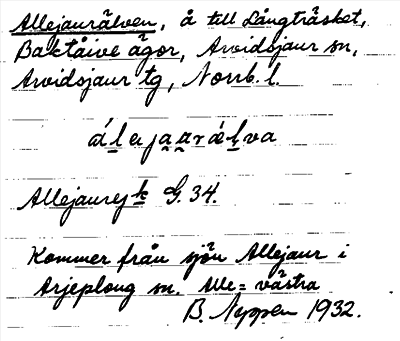 Allejaurälven, å till Långträsket,
Baktåive ägor, Arvidsjaur sn,
Arvidsjaur tg, Norrb. l.
álejaarǽlva
Allejaurejk G. 34.
Kommer från sjön Allejaur i
Arjeploug sn. Alle = västra
B. Nyppen 1932.